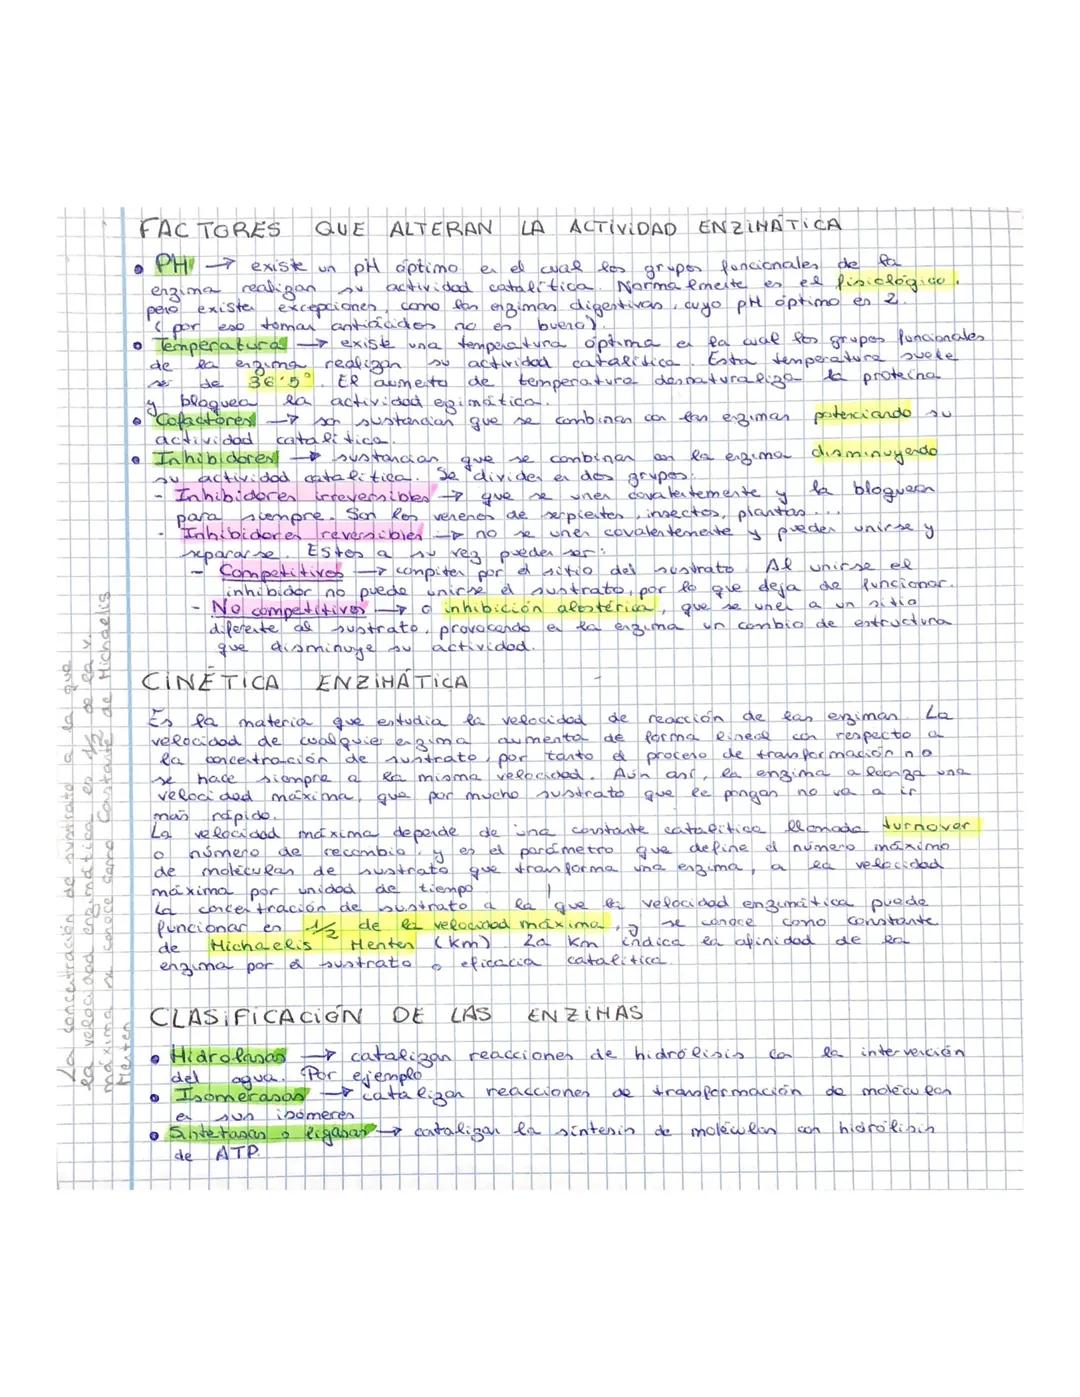 FACTORES QUE ALTERAN LA ACTIVIDAD ENZIMÁTICA
• PH → existe un pH óptimo en el cual los grupos funcionales de la
enzima realizan su actividad catalítica. Normalmente es el fisiológico,
pero existen excepciones, como las enzimas digestivas, cuyo pH óptimo es 2.
(por eso tomar antiácidos no es bueno).
• Temperatura → existe una temperatura óptima en la cual los grupos funcionales
de la enzima realizan su actividad catalítica. Esta temperatura suele
ser de 36'5°. El aumento de temperatura desnaturaliza la proteína
y bloquea la actividad enzimática.
• Cofactores → son sustancias que se combinan con las enzimas potenciando su
actividad catalítica.
• Inhibidores → sustancias que se combinan con la enzima disminuyendo
su actividad catalítica. Se dividen en dos grupos:
- Inhibidores irreversibles → que se unen covalentemente y la bloquean
para siempre. Son los venenos de serpientes, insectos, plantas...
- Inhibidores reversibles → no se unen covalentemente y pueden unirse y
separarse. Estos a su vez pueden ser:
- Competitivos → compiten por el sitio del sustrato. Al unirse el
inhibidor no puede unirse el sustrato, por lo que deja de funcionar.
- No competitivos → o inhibición alostérica, que se unen a un sitio
diferente al sustrato, provocando en la enzima un cambio de estructura
que disminuye su actividad.
CINÉTICA ENZIMÁTICA
Es la materia que estudia la velocidad de reacción de las enzimas. La
velocidad de cualquier enzima aumenta de forma lineal con respecto a
la concentración de sustrato, por tanto el proceso de transformación no
se hace siempre a la misma velocidad. Aún así, la enzima alcanza una
velocidad máxima, que por mucho sustrato que le pongas no va a ir
más rápido.
La velocidad máxima depende de una constante catalítica llamada turnover
o número de recambio, y es el parámetro que define el número máximo
de moléculas de sustrato que transforma una enzima, a la velocidad
máxima por unidad de tiempo.
La concentración de sustrato a la que la velocidad enzimática puede
funcionar en 1/2 de la velocidad máxima, y se conoce como constante
de Michaelis Menten (Km). La Km indica la afinidad de la
enzima por el sustrato o eficacia catalítica.
CLASIFICACIÓN DE LAS ENZIMAS
• Hidrolasas → catalizan reacciones de hidrólisis con la intervención
del agua. Por ejemplo
• Isomerasas → catalizan reacciones de transformación de moléculas
en sus isómeros
• Sintetasas o ligasas → catalizan la síntesis de moléculas con hidrólisis
de ATP.
La concentración de sustrato a la que
la velocidad enzimática es 1/2 de la v.
máxima se conoce como Constante de Michaelis
Menten